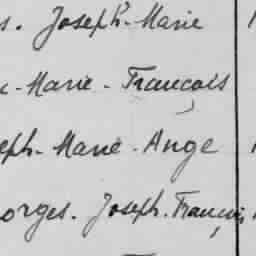 s. Joseph-Marie
-Marie-François
eph-Marie-Ange
orges. Joseph. François